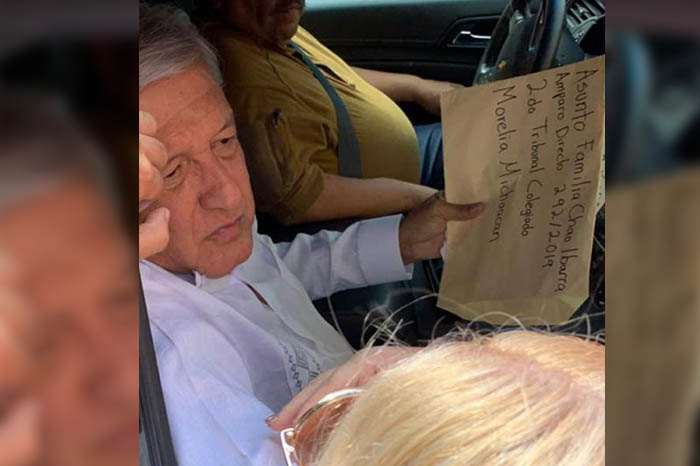 Asunto Familia Chao Ibarra
Amparo Directo 292/2019
2do Tribunal Colegiado
Morelia Michoacan